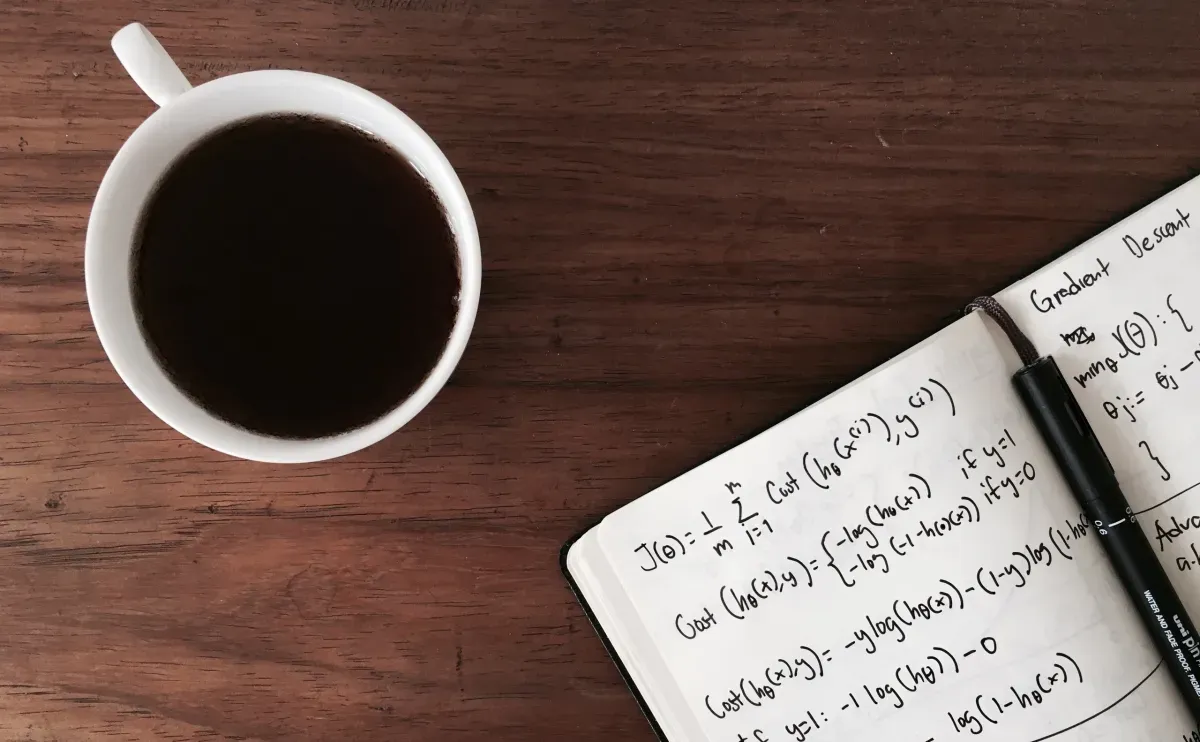 J(θ) = 1/m Σ i=1 m Cost (hθ(x(i)), y(i))
Cost (hθ(x),y) = { -log(hθ(x)) if y=1
-log (-1-h(θ)(x)) if y=0
Cost(hθ(x),y) = -y log(hθ(x)) - (1-y) log (1-hθ
y=1: -1 log(hθ)) - 0
log(1-hθ(x))
Gradient Descent
minθ J(θ) : {
θj := θj -
}
0.6
WATER AND FADE PROOF,
uni pin